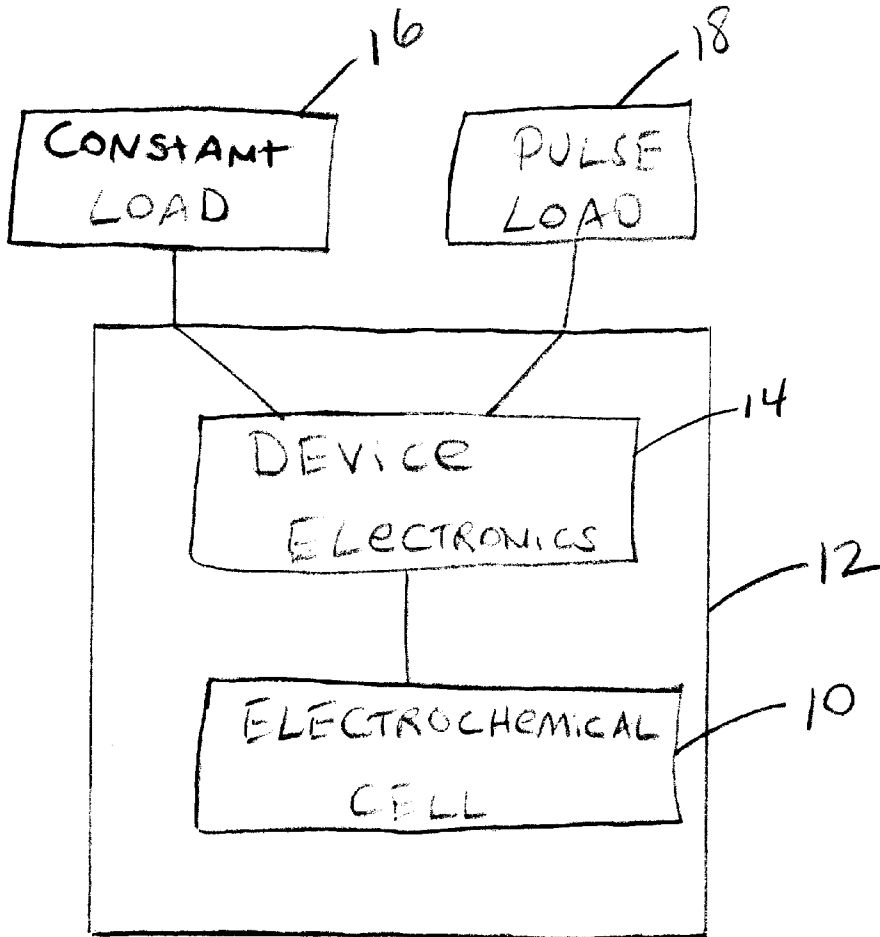 16
18
CONSTANT
LOAD
PULSE
LOAD
14
DEVice
ELecTRONICS
12
10
ELECTROCHeMiCAL
CELL